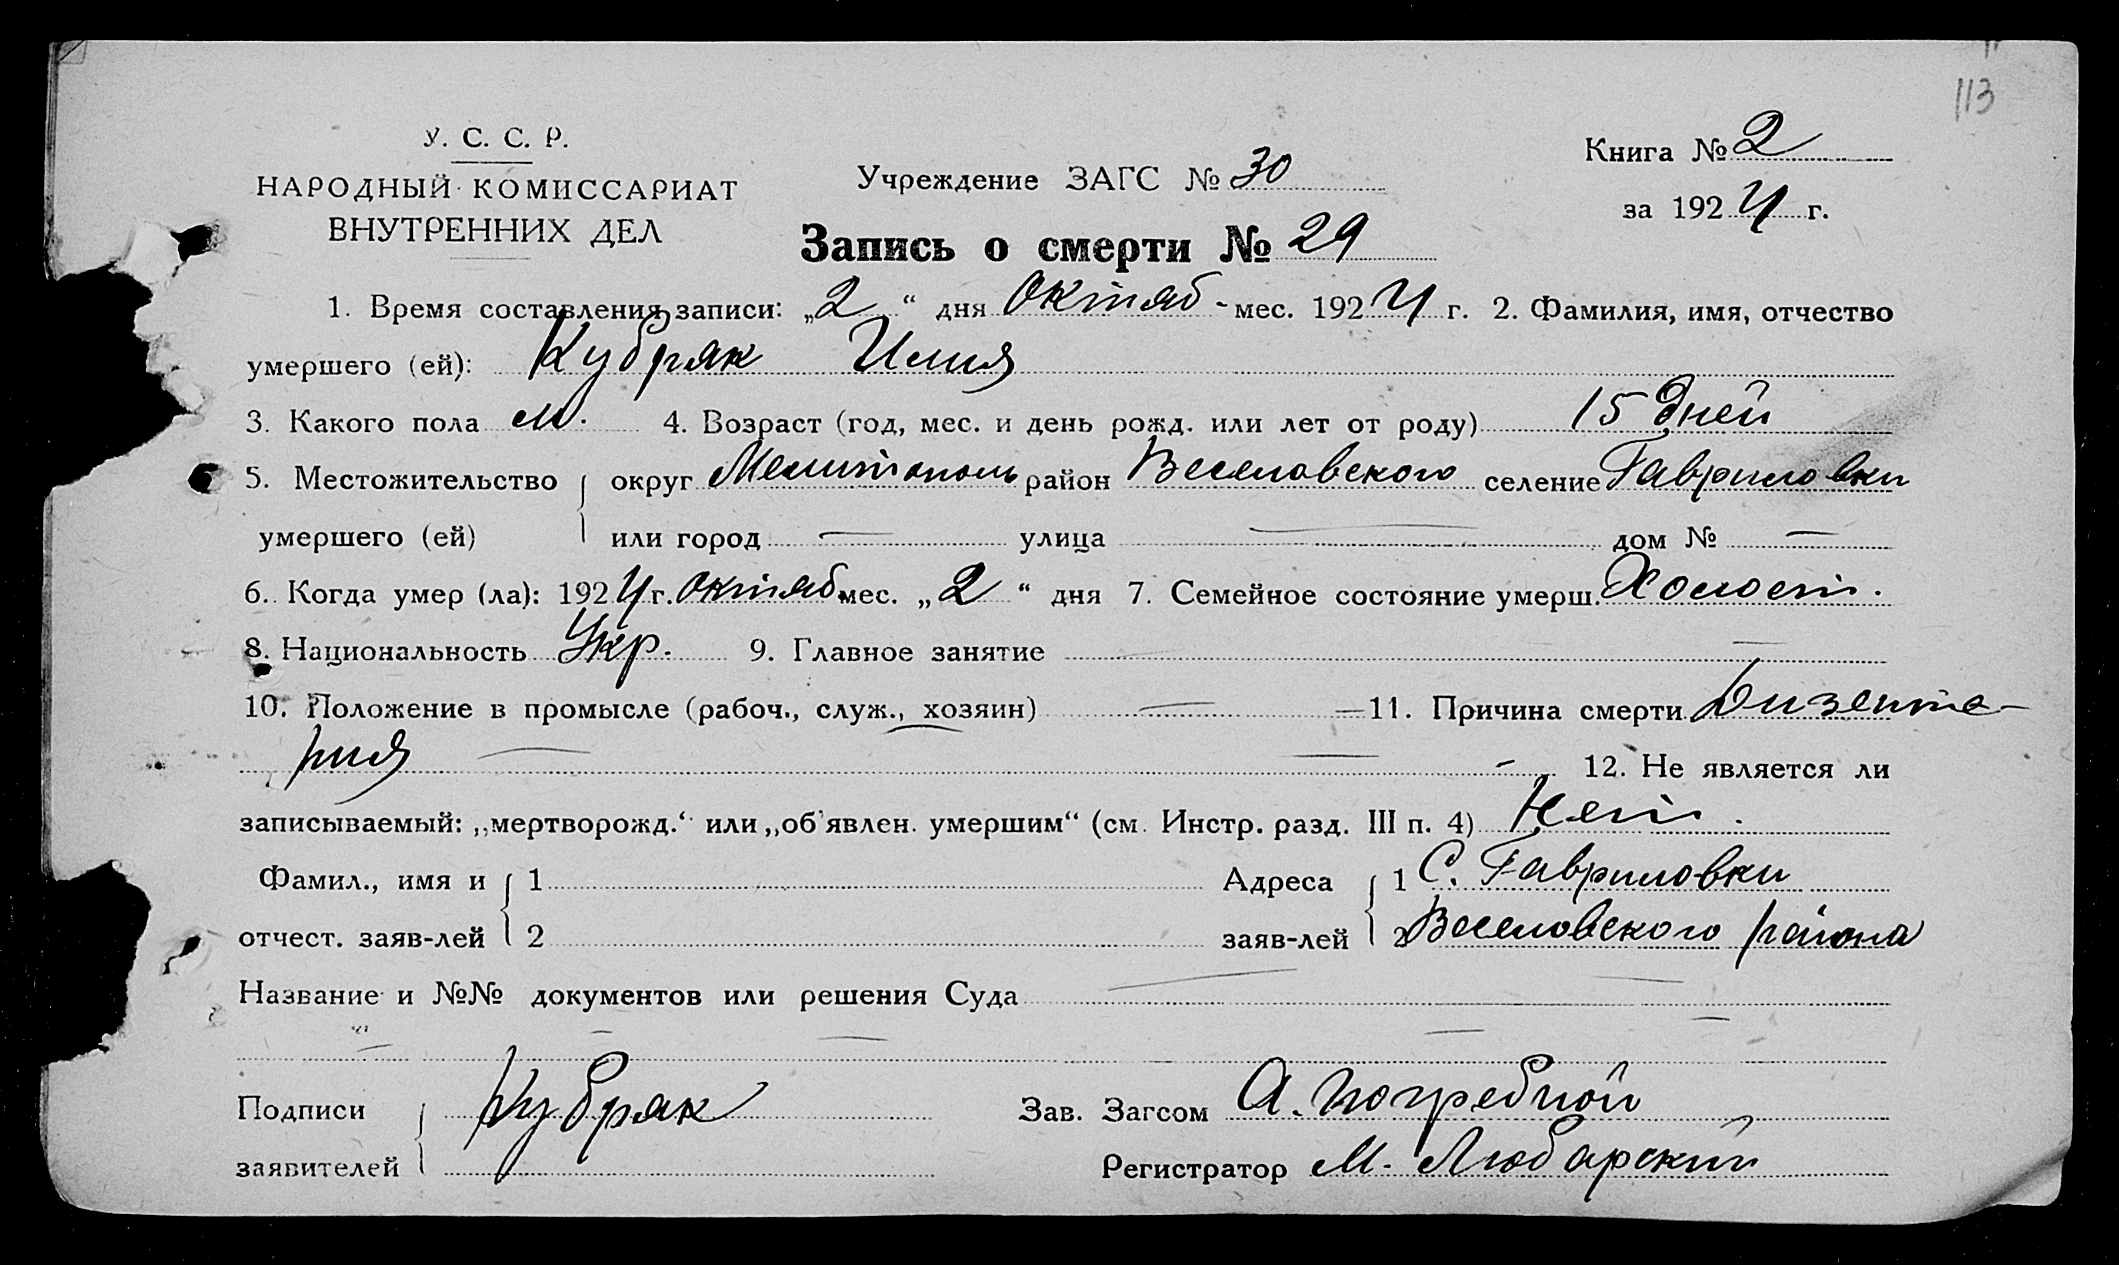 113
У. С. С. Р.
НАРОДНЫЙ КОМИССАРИАТ
ВНУТРЕННИХ ДЕЛ
Учреждение ЗАГС № 30
Книга № 2
за 1924 г.
Запись о смерти № 29
1. Время составления записи: „2“ дня Октяб- мес. 1924 г. 2. Фамилия, имя, отчество
умершего (ей): Кубряк Илия
3. Какого пола м. 4. Возраст (год, мес. и день рожд. или лет от роду) 15 дней
5. Местожительство округ Мелитополь район Веселовского селение Гавриловки
умершего (ей) или город — улица — дом № —
6. Когда умер (ла): 1924 г. октяб. мес. „2“ дня 7. Семейное состояние умерш. Холост.
8. Национальность Укр. 9. Главное занятие —
10. Положение в промысле (рабоч., служ., хозяин) — 11. Причина смерти Дизенте-
рия — — - 12. Не является ли
записываемый: „мертворожд.“ или „об'явлен. умершим“ (см. Инстр. разд. III п. 4) Нет.
Фамил., имя и 1 Адреса 1 С. Гавриловки
отчест. заяв-лей 2 заяв-лей 2 Веселовского района
Название и №№ документов или решения Суда — —
— — — — —
Подписи Кубряк Зав. Загсом А. Погребной
заявителей Регистратор М. Любарский